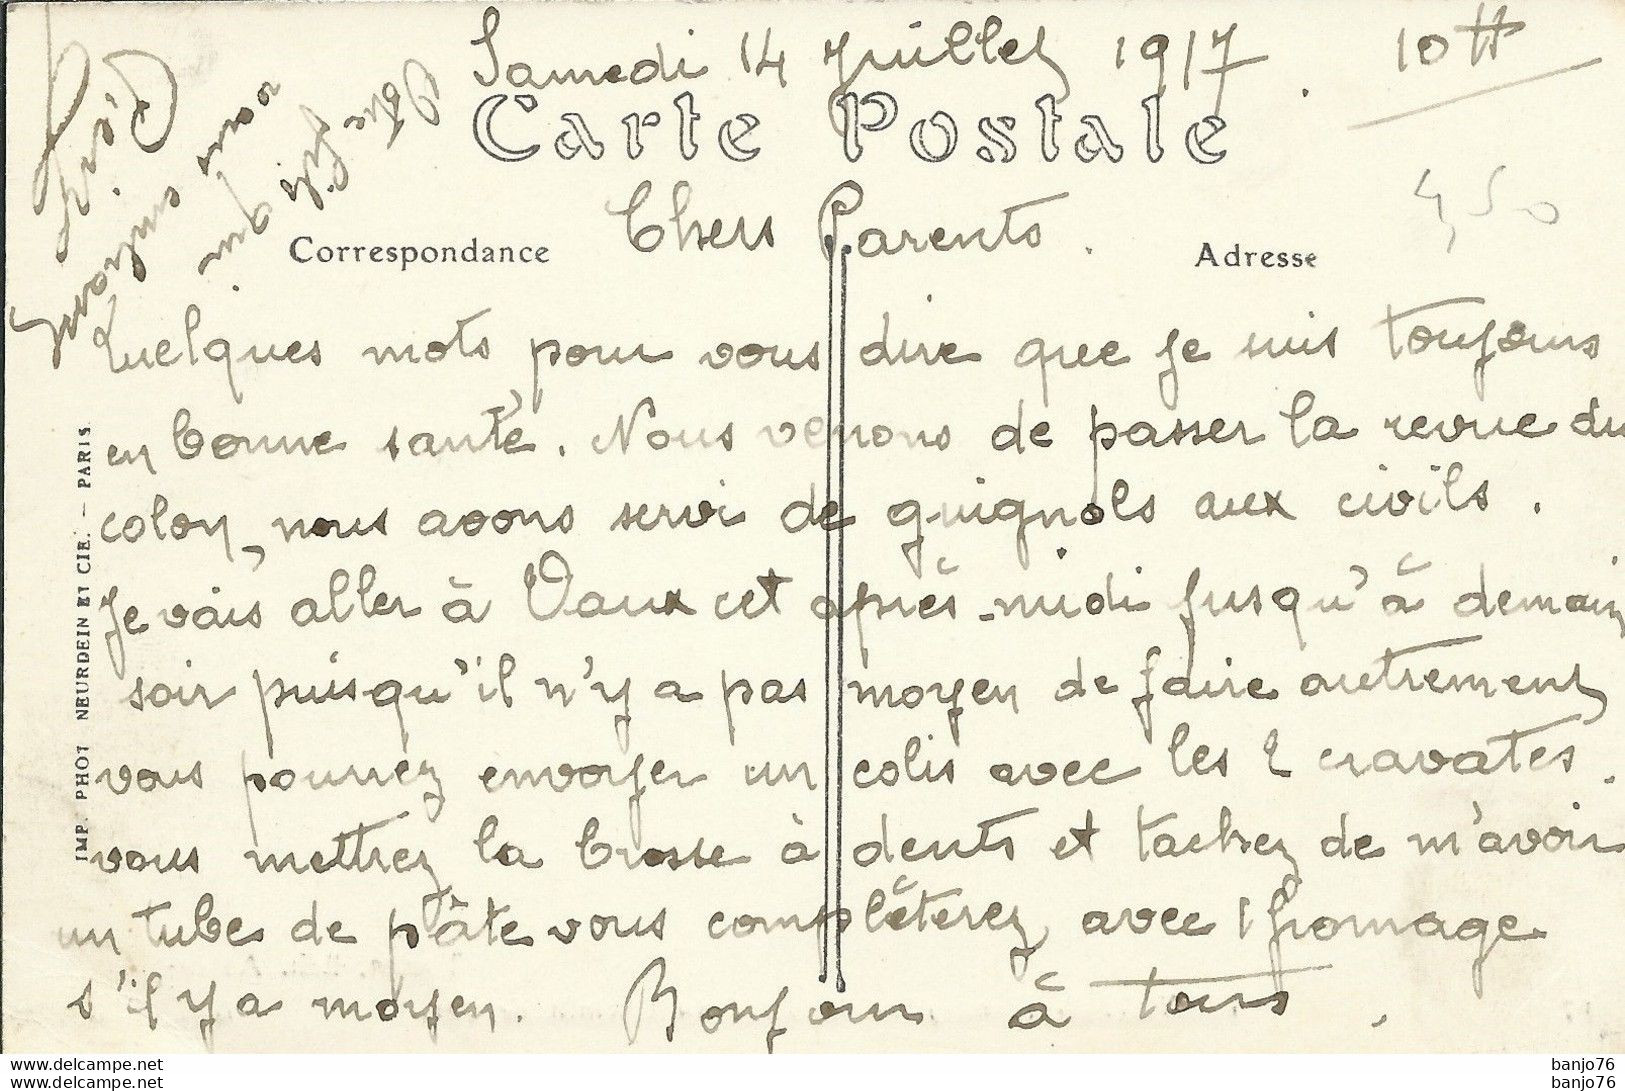 Samedi 14 Juillet 1917. 10H
Carte Postale
450
Chers Parents.
Correspondance
Adresse
Quelques mots pour vous dire que je suis toujours
en bonne santé. Nous venons de passer la revue du
colon, nous avons servi de guignols aux civils.
Je vais aller à Vaux cet après-midi jusqu'à demain
soir puisqu'il n'y a pas moyen de faire autrement
vous pourrez envoyer un colis avec les 2 cravates.
vous mettrez la brosse à dents et tachez de m'avoir
un tube de pâte vous complèterez avec 1 fromage
s'il y a moyen. Bonjour à tous.
Votre fils qui
vous embrasse
IMP. PHOT NEURDEIN ET CIE. - PARIS
banjo76
banjo76
banjo76
banjo76